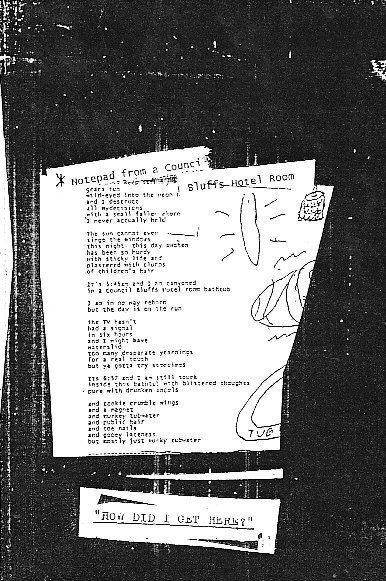 Notepad from a Council
Bluffs Hotel Room
gears turn
wild-eyed into the neon
and I destruct
all
with a small fallen acorn
I never actually held
The sun cannot even
singe the windows
this night; this day sudden
has been so
with sticky life and
plastered with clumps
of children's hair
It's and I am
in a Council Bluffs Hotel room bathtub
I am in no way reborn
but the day is on the run
the TV hasn't
had a signal
in six hours
and I might have
too many desperate yearnings
for a real touch
but ya gotta try sometimes
It's and I am still
inside this bathtub with blistered thoughts
pure with drunken angels
and cookie crumble wings
and a magnet
and murkey tubwater
and public hair
and toe nails
and gooey lateness
but mostly just murky tubwater
TUB
"HOW DID I GET HERE?"